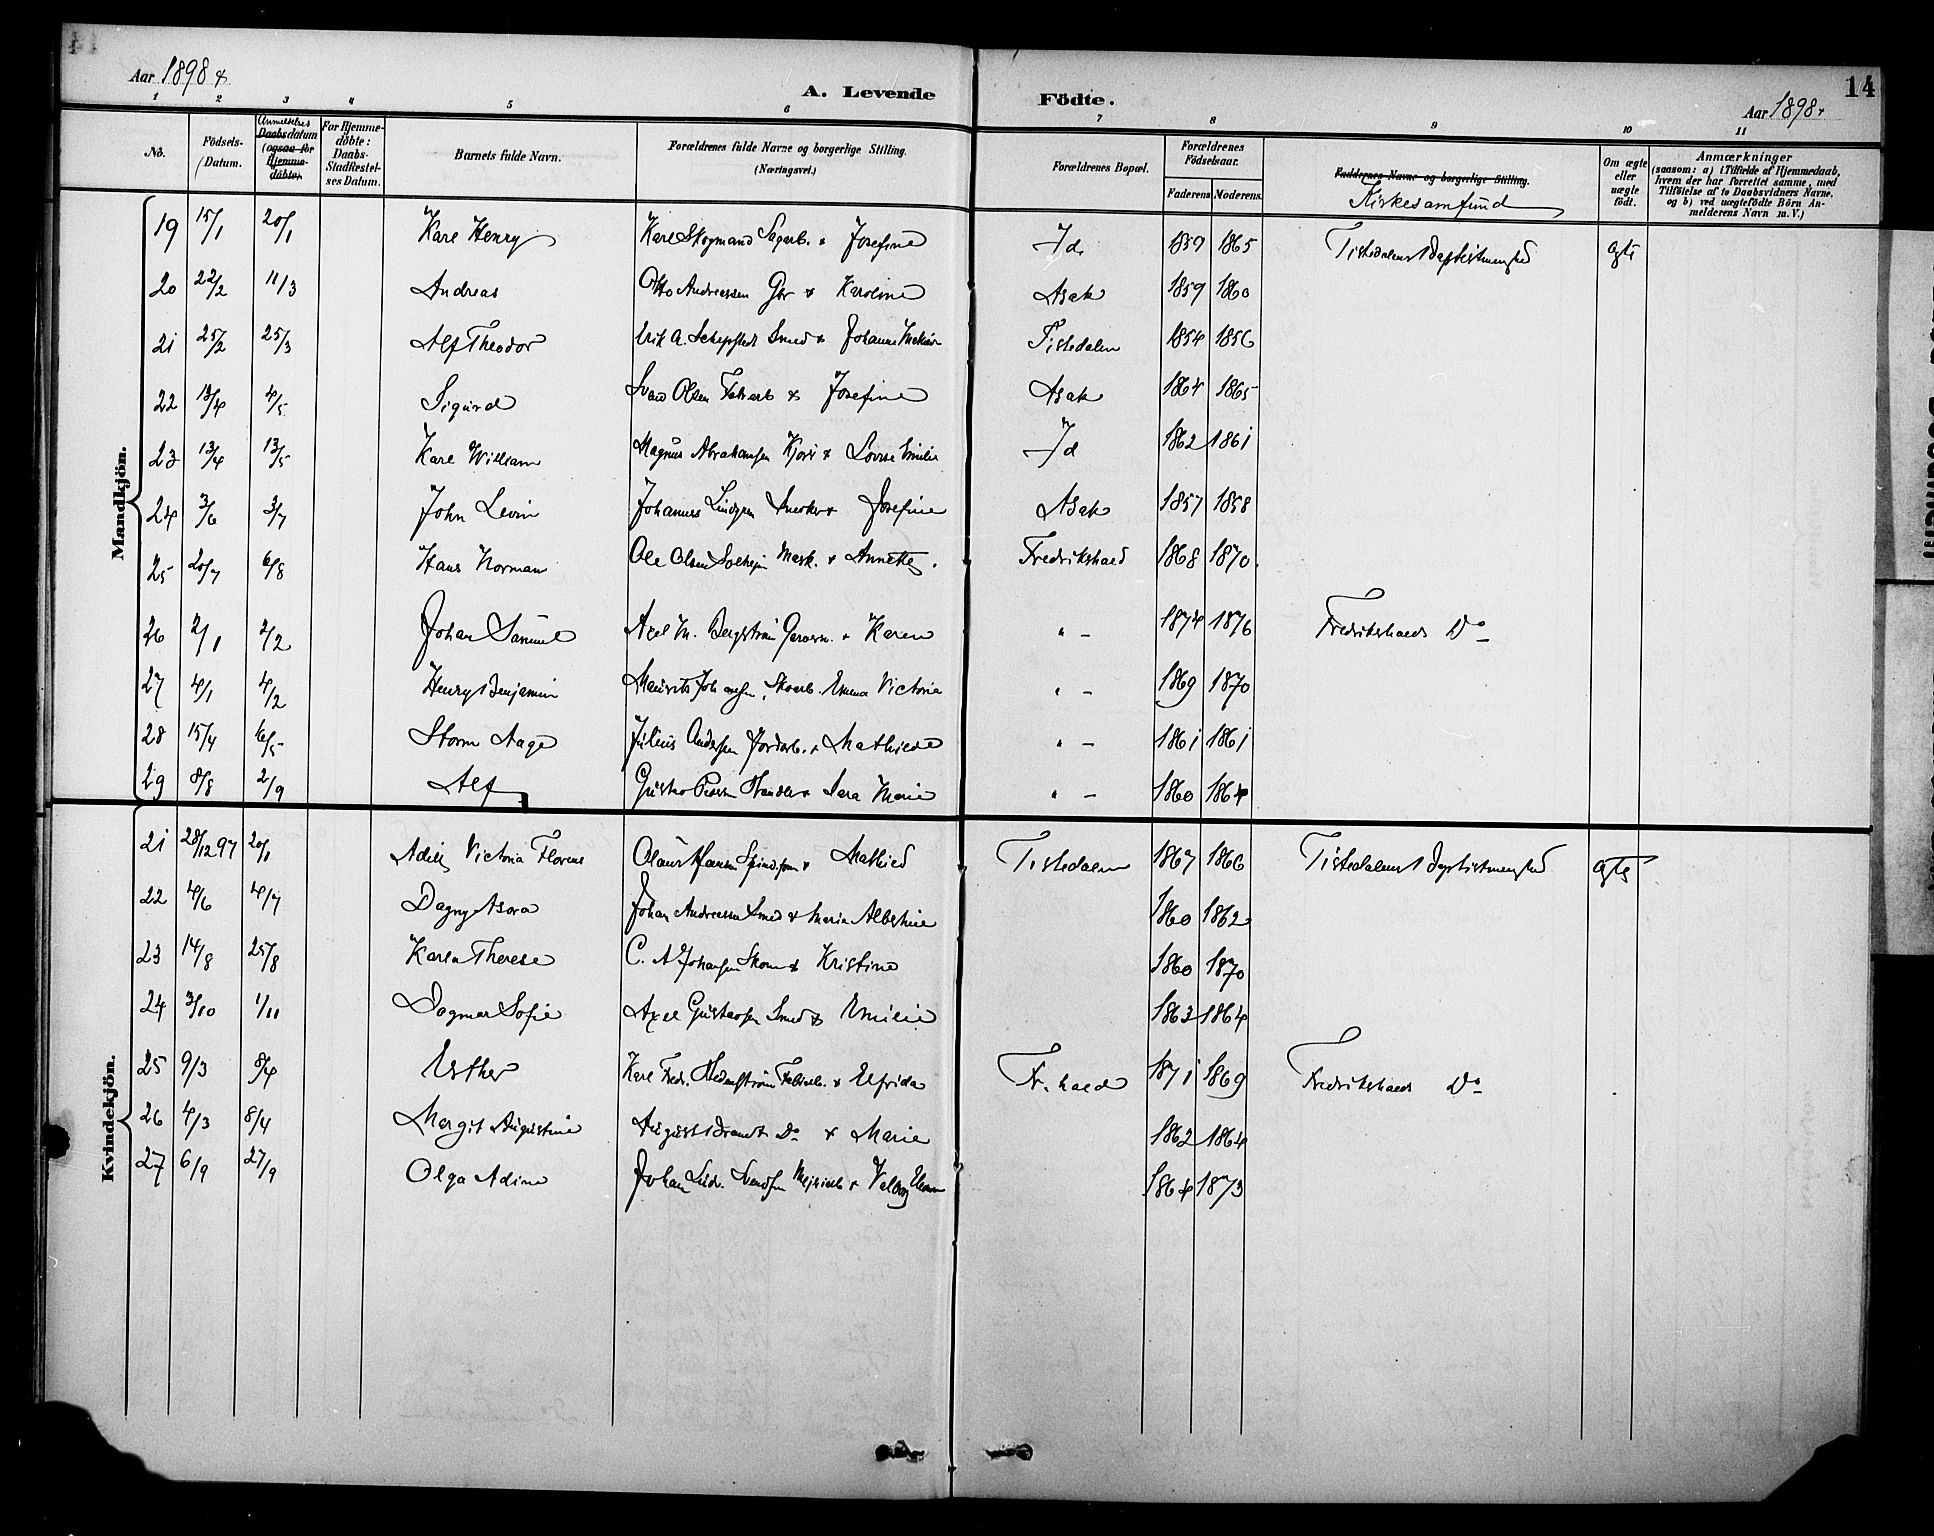 Aar 1898
A. Levende Födte.
Aar 1898
14
1 2 3 4 5 6 7 8 9 10 11
No. Födsels-Datum. Anmeldelses Daabsdatum (ogsaa for Hjemmedöbte). For Hjemmedöbte: Daabs-Stadfæstelses Datum. Barnets fulde Navn. Forældrenes fulde Navne og borgerlige Stilling. (Næringsvei.) Forældrenes Bopæl. Forældrenes Födselsaar. Faderens Moderens. Faddernes Navne og borgerlige Stilling. Kirkesamfund Om ægte eller uægte födt. Anmærkninger (saasom: a) i Tilfælde af Hjemmedaab, hvem der har forrettet samme, med Tilföielse af to Daabsvidners Navne, og b) ved uægtefödte Börn Anmelderens Navn m. V.)
Mandkjön.
19 15/1 20/1 Karl Henry Karl Skogmand Sagarb. & Josefine Id. 1859 1865 Tistedalens Baptistmenighed ægte
20 22/2 11/3 Andreas Otto Andreassen Gbr & Karoline Asak 1859 1860
21 25/2 25/3 Alf Theodor Erik A. Smed & Johanne Tistedalen 1854 1856
22 13/4 4/5 Sigurd Olsen Fabarb & Josefine Asak 1864 1865
23 13/4 13/5 Karl William Magnus Abrahamsen & Lovise Emilie Id 1862 1861
24 3/6 3/7 John Levin Johannes Lindgren Snedker & Josefine Asak 1857 1858
25 20/7 6/8 Hans Norman Ole Olsen Solheim Mask. & Annette. Fredrikshald 1868 1870.
26 2/1 2/2 Johan Samuel Axel M. Bergström & Karen " – 1874 1876 Fredrikshalds Do
27 4/1 4/2 Henry Benjamin Mauritz Johansen, Emma Victoria " – 1869 1870
28 15/4 16/5 Storm Aage Julius Andersen Jordarb. & Mathilde " – 1861 1861
29 8/8 2/9 Alf Gustav & Sara Marie " – 1860 1864
Kvindekjön.
21 28/12 97 20/1 Adile Victoria Florence Olaus Hansen & Mathild Tistedalen 1867 1866 Tistedalens Baptistmenighed ægte
22 4/6 4/7 Dagny Asora Johan Andreassen Smed & Maria Albertine 1860 1862
23 14/8 25/8 Karen Therese C. A. Johansen Skom & Kristine 1860 1870
24 3/10 1/11 Dagmar Sofie Axel Gustavsen Smed & Emilie 1863 1864
25 9/3 8/4 Esther Karl Fredr. Hedenström Fabarb. & Elfrida Fr. hald 1871 1869 Fredrikshalds Do
26 4/3 8/4 Margit Augustine August Brandt Do & Marie 1862 1864
27 6/9 27/9 Olga Adine Johan Svendsen & Valborg 1864 1873